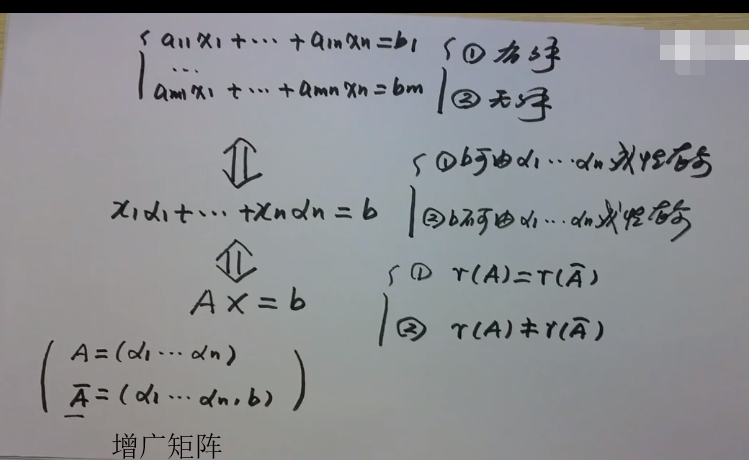 { a11x1+···+a1nxn=b1
···
am1x1+···+amnxn=bm
{ ① 有解
② 无解
⇕
x1α1+···+xnαn=b
{ ①b可由α1···αn线性表示
②b不可由α1···αn线性表示
⇕
AX=b
{ ① r(A)=r(Ā)
② r(A)≠r(Ā)
( A=(α1···αn)
Ā=(α1···αn,b) )
增广矩阵